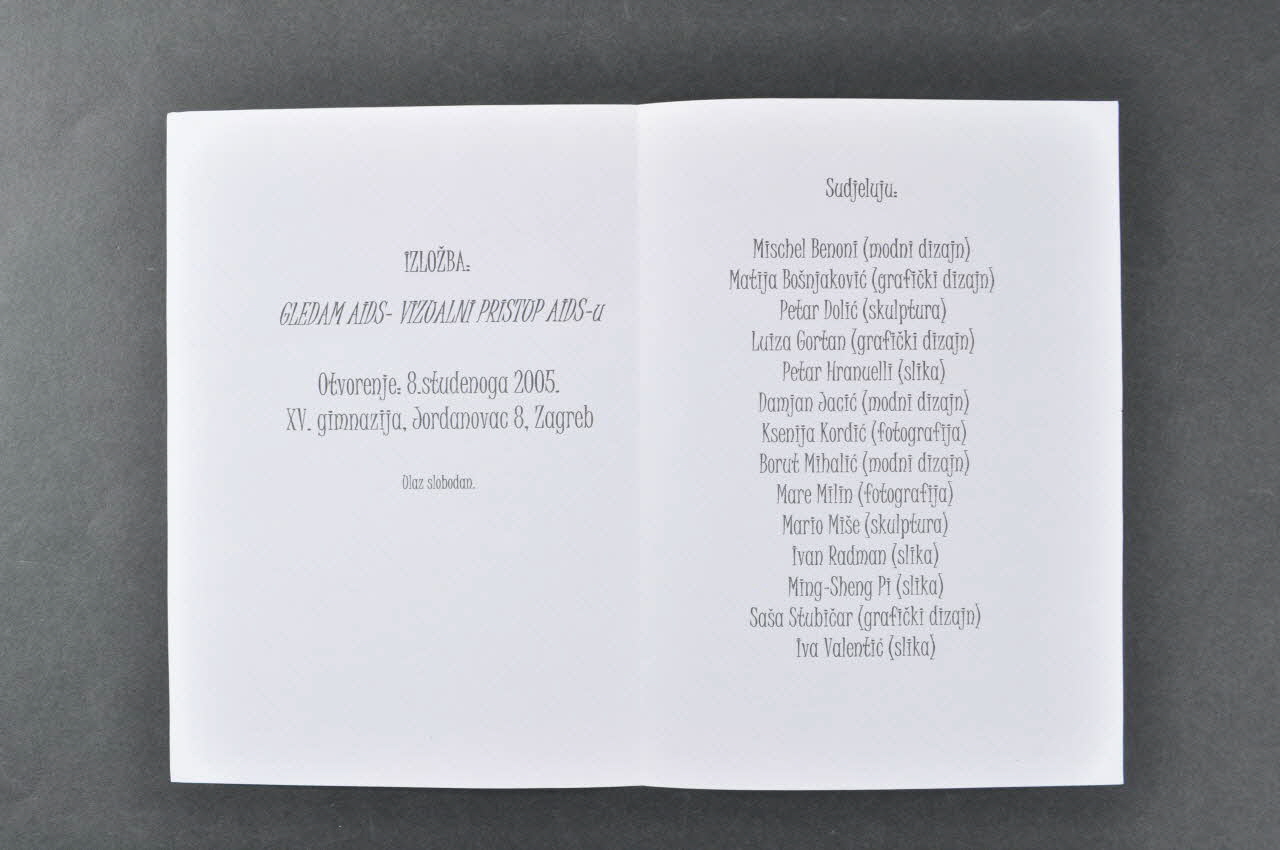 IZLOŽBA:
GLEDAM AIDS- VIZUALNI PRISTUP AIDS-u
Otvorenje: 8.studenoga 2005.
XV. gimnazija, Jordanovac 8, Zagreb
Ulaz slobodan.
Sudjeluju:
Mischel Benoni (modni dizajn)
Matija Bošnjaković (grafički dizajn)
Petar Dolić (skulptura)
Luiza Gortan (grafički dizajn)
Petar Hranuelli (slika)
Damjan Jacić (modni dizajn)
Ksenija Kordić (fotografija)
Borut Mihalić (modni dizajn)
Mare Milin (fotografija)
Mario Miše (skulptura)
Ivan Radman (slika)
Ming-Sheng Pi (slika)
Saša Stubičar (grafički dizajn)
Iva Valentić (slika)